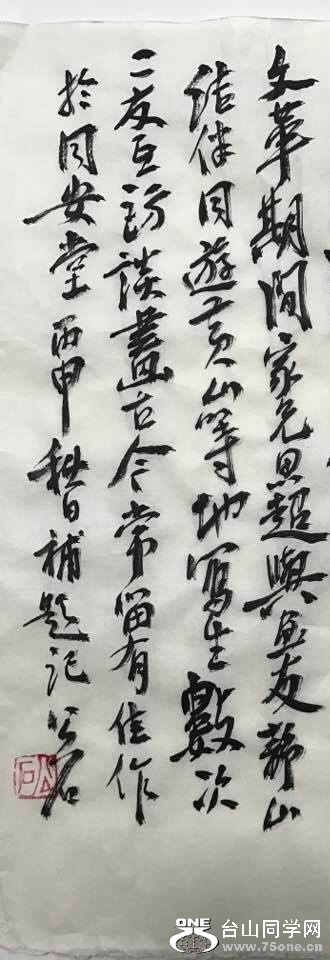 文革期間家兄思超與画友山
结伴同遊黄山等地寫生數次
二友互訪談畫古今常留有佳作
於同安堂 丙申秋日補題記 公石
公石
ONE
台山同学网
www.75one.cn